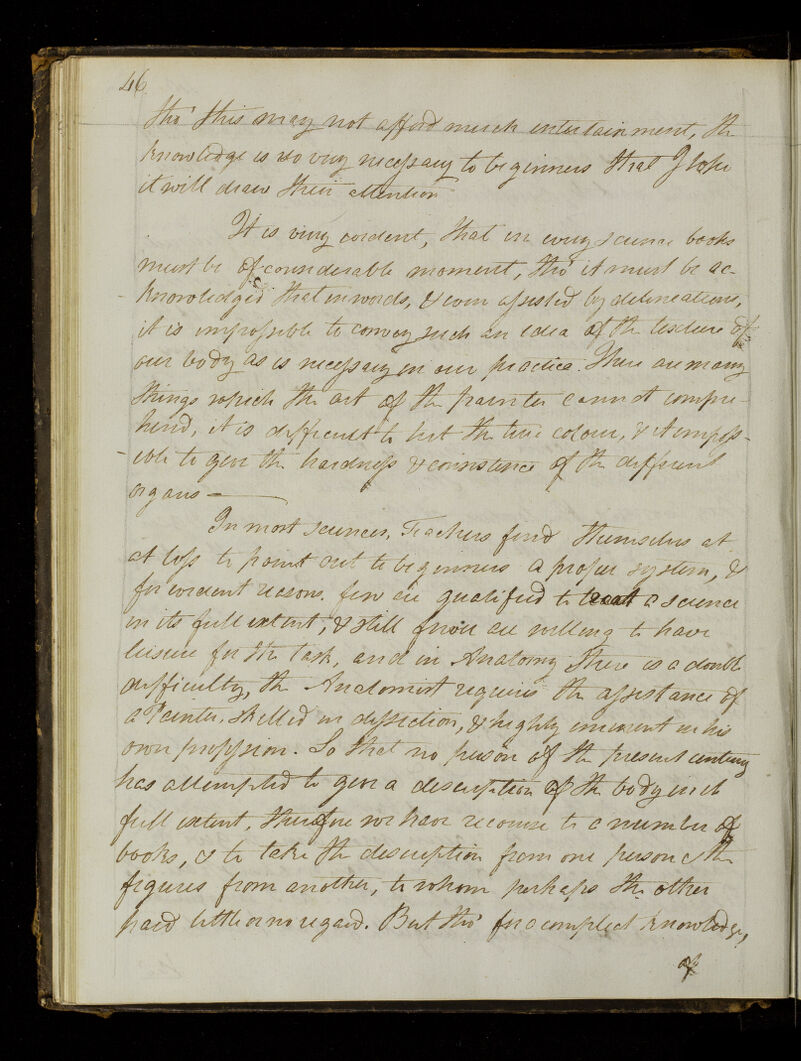 46
tho' this may not afford much entertainment, the
knowledge is so very necessary to beginners that I hope
it will draw their attention
It is very evident, that in every science books
must be of considerable moment, tho' it must be ac-
knowledged that in words, & even assisted by delineations,
it is impossible to convey such an idea of the texture of
our body as is necessary in our practice. There are many
things which the art of the painter cannot compre-
hend, it is difficult to hit the true colour, & it imposs-
ible to give the hardness & consistence of the different
organs —
In most sciences, Teachers find themselves at
at loss to point out to beginners a proper system, &
for evident reasons. few are qualified to treat a science
in its full extent, & still fewer are willing to have
leisure for the task, and in Anatomy there is a double
difficulty, the Anatomist requires the assistance of
a Painter, skilled in dissection, & highly eminent in his
own profession. So that no person of the present century
has attempted to give a description of the body in its
full extent, therefore we have recourse to a number of
books, & to take the description from one person & the
figures from another, to whom perhaps the other
paid little or no regard. But tho' for a compleat knowledge,
of